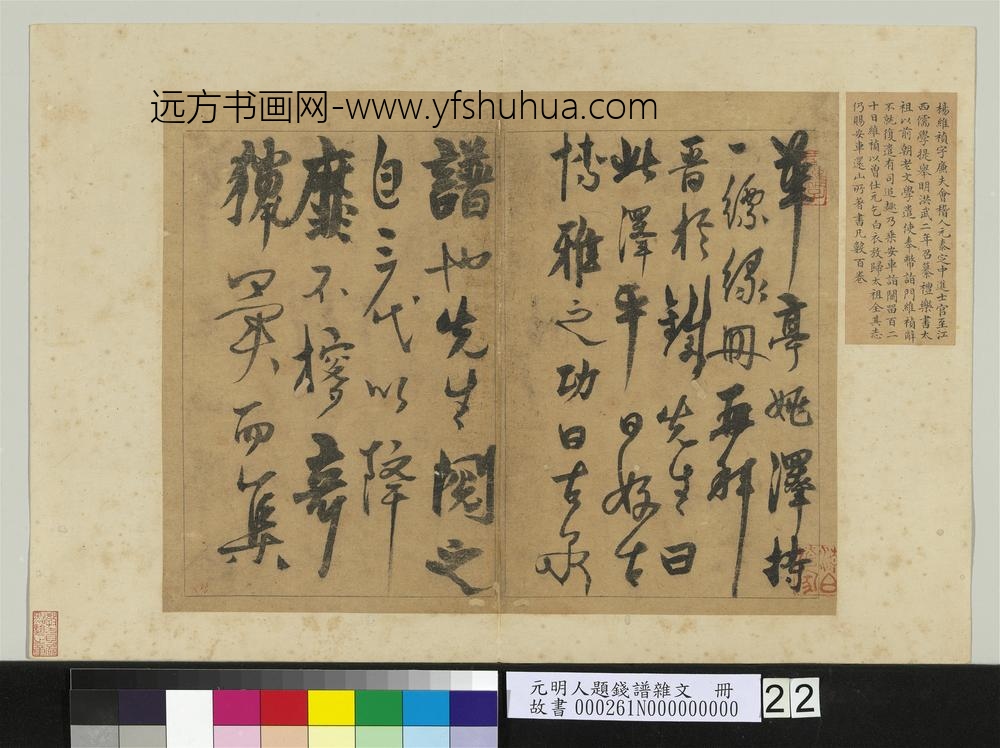 远方书画网-www.yfshuhua.com
楊維禎字廉夫會稽人元泰定中進士官至江
西儒學提舉明洪武二年召纂禮樂書太
祖以前朝老文學遣使奉幣詣門維禎辭
不就復遣有司追趣乃乘安車詣闕留百二
十日維禎以曾仕元乞白衣放歸太祖全其志
仍賜安車還山所著書凡數百卷
華亭姚澤持
一縹緣冊再拜
晉於鐵先生曰
此澤平日好古
博雅之功曰古泉
譜也先生閱之
自三代以降
靡不奇
獵異而集
元明人題錢譜雜文 冊
故書 000261N000000000
22